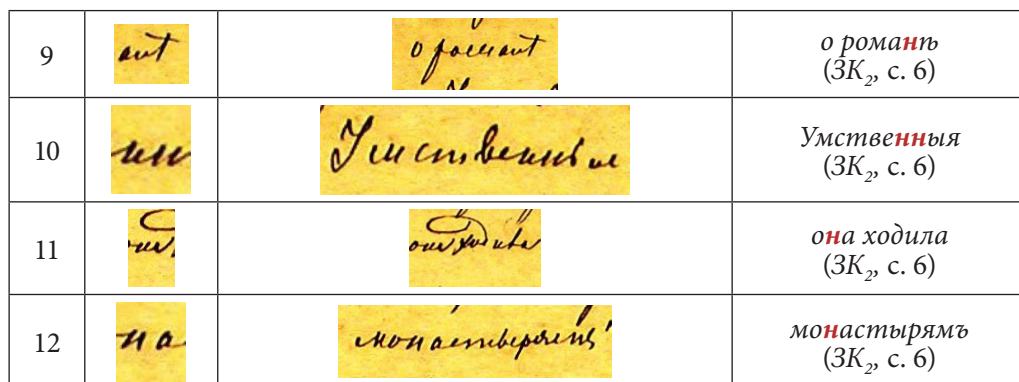 9 ант о романт о романѣ
(ЗК₂, с. 6)
10 нн Умственныя Умственныя
(ЗК₂, с. 6)
11 она она ходила она ходила
(ЗК₂, с. 6)
12 на монастырямъ монастырямъ
(ЗК₂, с. 6)